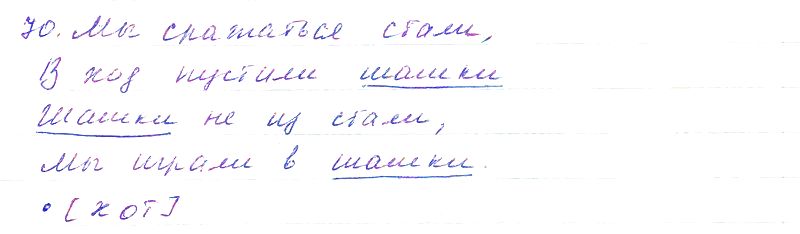 70. Мы сражаться стали,
В ход пустили шашки
Шашки не из стали,
Мы играли в шашки.
• [хот]